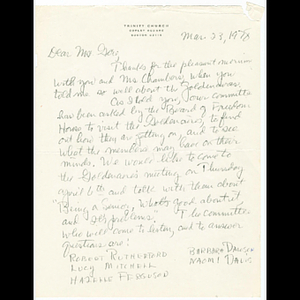 TRINITY CHURCH
COPLEY SQUARE
BOSTON 02116
Mar. 23, 1978
Dear Mrs.
Thanks for the pleasant
with you and Mrs. Chambers, when you
told me so well about the Goldenaires.
As I told you, our committee
has been asked by the Board of Freedom
House to visit the Goldenaires, to find
out how they are getting on, and to see
what the members may have on their
minds. We would like to come to
the Goldenaires meeting on Thursday
April 6th and talk with them about
"Being a Senior, What's good about it,
and its problems". The committee
who will come to listen and to answer
questions are:
ROBERT RUTHERFORD BARBARA
LUCY MITCHELL NAOMI DAVIS
HAZELLE FERGUSON